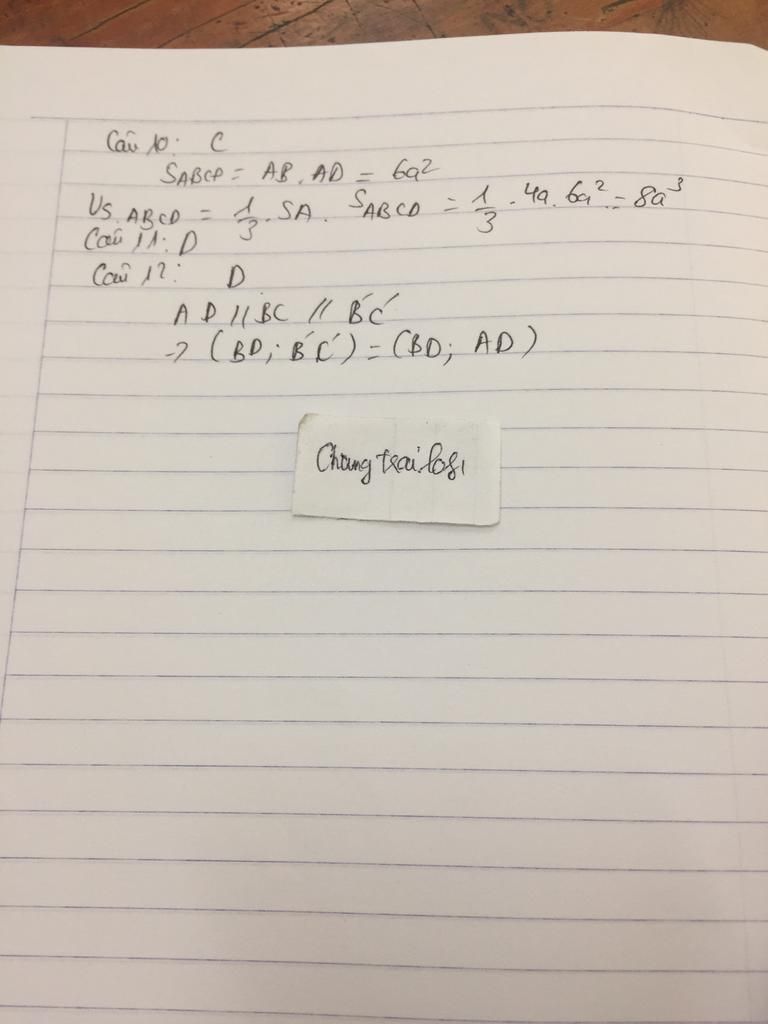 Câu 10: C
SABCD = AB. AD = 6a²
VS.ABCD = 1/3 . SA. SABCD = 1/3 . 4a. 6a² = 8a³
Câu 11: D
Câu 12: D
AD // BC // B'C'
-> (BD; B'C') = (BD; AD)